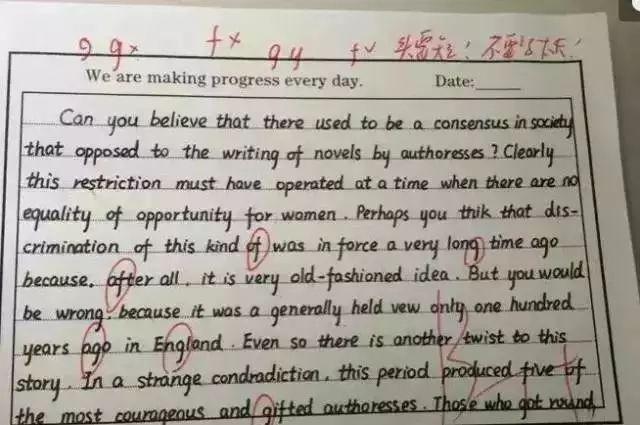 9 g× f× g y f✓ 头要短！不要写太长！
We are making progress every day. Date:
Can you believe that there used to be a consensus in society
that opposed to the writing of novels by authoresses ? Clearly
this restriction must have operated at a time when there are no
equality of opportunity for women . Perhaps you thik that dis-
crimination of this kind of was in force a very long time ago
because, after all , it is very old-fashioned idea . But you would
be wrong, because it was a generally held vew only one hundred
years ago in England . Even so there is another twist to this
story . In a strange condradiction , this period produced five of
the most courageous and gifted authoresses . Those who got round,